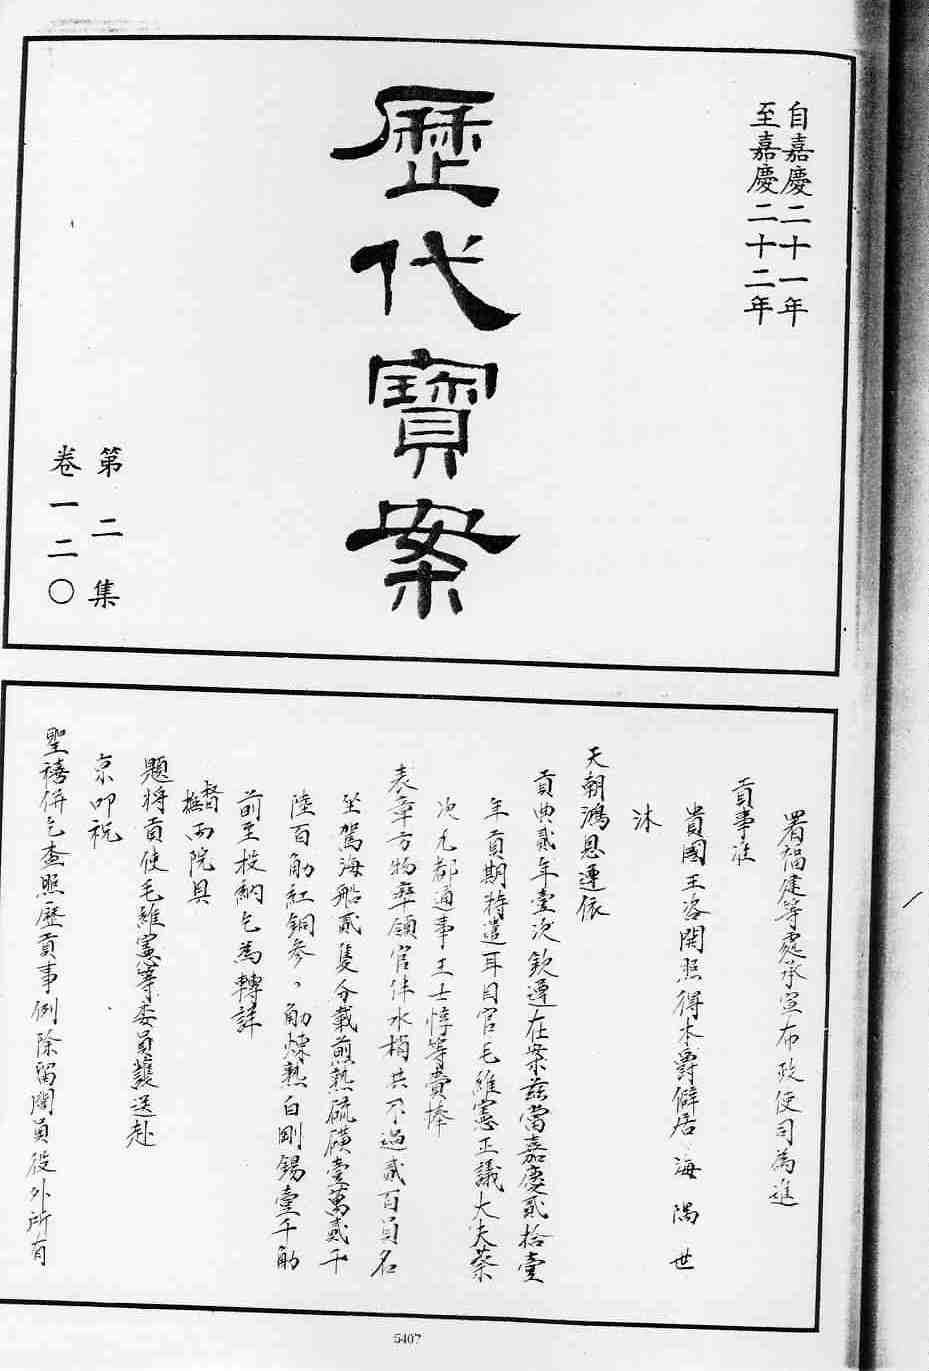 自嘉慶二十一年
至嘉慶二十二年
歷代寶案
第二集
卷一二〇
署福建等處承宣布政使司為進
貢事准
貴國王咨開照得本爵僻居海隅世
沐
天朝鴻恩遵依
貢典貳年壹次欽遵在案茲當嘉慶貳拾壹
年貢期特遣耳目官毛維憲正議大夫蔡
次九都通事王士惇等賫捧
表章方物率領官伴水梢共不過貳百員名
坐駕海船貳隻分載煎熟硫磺壹萬貳千
陸百觔紅銅參〻觔煉熟白剛錫壹千觔
前至投納乞為轉詳
督撫兩院具
題將貢使毛維憲等委員護送赴
京叩祝
聖禧併乞查照歷貢事例除留閩員役外所有
5407